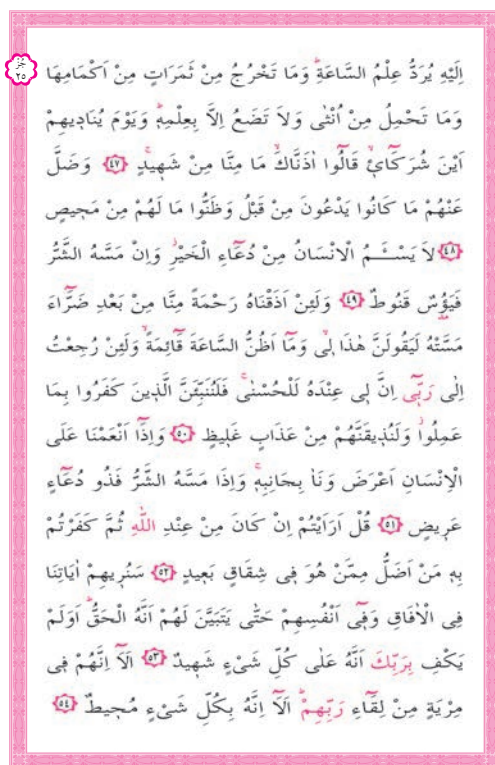 جُزْ
٢٥
اِلَيْهِ يُرَدُّ عِلْمُ السَّاعَةِۜ وَمَا تَخْرُجُ مِنْ ثَمَرَاتٍ مِنْ اَكْمَامِهَا
وَمَا تَحْمِلُ مِنْ اُنْثٰى وَلَا تَضَعُ اِلَّا بِعِلْمِه۪ۜ وَيَوْمَ يُنَاد۪يهِمْ
اَيْنَ شُرَكَٓاء۪يۙ قَالُٓوا اٰذَنَّاكَۙ مَا مِنَّا مِنْ شَه۪يدٍۚ ﴿٤٧﴾ وَضَلَّ
عَنْهُمْ مَا كَانُوا يَدْعُونَ مِنْ قَبْلُ وَظَنُّوا مَا لَهُمْ مِنْ مَح۪يصٍ
﴿٤٨﴾ لَا يَسْـَٔمُ الْاِنْسَانُ مِنْ دُعَٓاءِ الْخَيْرِۘ وَاِنْ مَسَّهُ الشَّرُّ
فَيَؤُ۫سٌ قَنُوطٌ ﴿٤٩﴾ وَلَئِنْ اَذَقْنَاهُ رَحْمَةً مِنَّا مِنْ بَعْدِ ضَرَّٓاءَ
مَسَّتْهُ لَيَقُولَنَّ هٰذَا ل۪يۙ وَمَٓا اَظُنُّ السَّاعَةَ قَٓائِمَةًۙ وَلَئِنْ رُجِعْتُ
اِلٰى رَبّ۪ٓي اِنَّ ل۪ي عِنْدَهُ لَلْحُسْنٰىۚ فَلَنُنَبِّئَنَّ الَّذ۪ينَ كَفَرُوا بِمَا
عَمِلُواۘ وَلَنُذ۪يقَنَّهُمْ مِنْ عَذَابٍ غَل۪يظٍ ﴿٥٠﴾ وَاِذَٓا اَنْعَمْنَا عَلَى
الْاِنْسَانِ اَعْرَضَ وَنَاٰ بِجَانِبِه۪ۚ وَاِذَا مَسَّهُ الشَّرُّ فَذُو دُعَٓاءٍ
عَر۪يضٍ ﴿٥١﴾ قُلْ اَرَاَيْتُمْ اِنْ كَانَ مِنْ عِنْدِ اللّٰهِ ثُمَّ كَفَرْتُمْ
بِه۪ مَنْ اَضَلُّ مِمَّنْ هُوَ ف۪ي شِقَاقٍ بَع۪يدٍ ﴿٥٢﴾ سَنُر۪يهِمْ اٰيَاتِنَا
فِي الْاٰفَاقِ وَف۪ٓي اَنْفُسِهِمْ حَتّٰى يَتَبَيَّنَ لَهُمْ اَنَّهُ الْحَقُّۜ اَوَلَمْ
يَكْفِ بِرَبِّكَ اَنَّهُ عَلٰى كُلِّ شَيْءٍ شَه۪يدٌ ﴿٥٣﴾ اَلَٓا اِنَّهُمْ ف۪ي
مِرْيَةٍ مِنْ لِقَٓاءِ رَبِّهِمْۜ اَلَٓا اِنَّهُ بِكُلِّ شَيْءٍ مُح۪يطٌ ﴿٥٤﴾